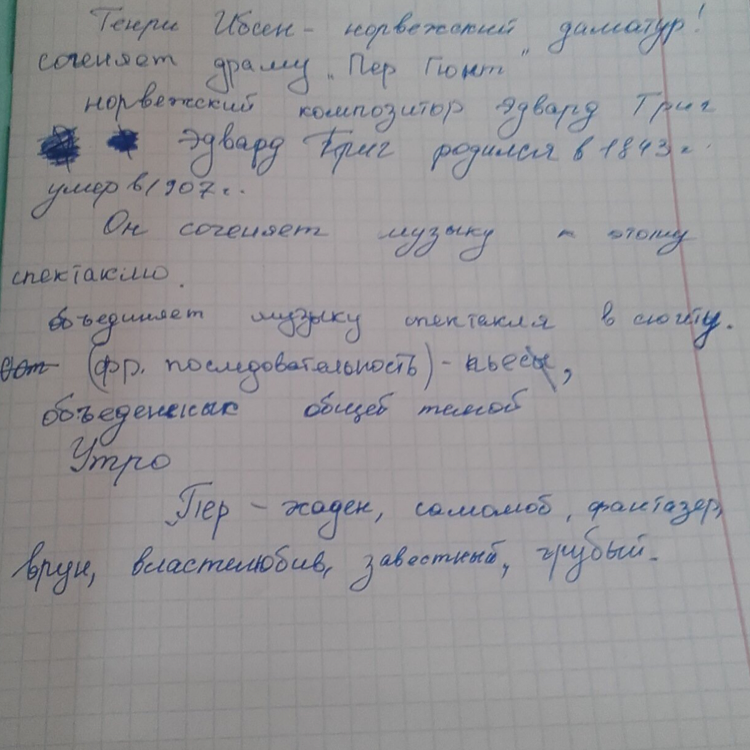 Генри Ибсен - норвежский даматур!
сочиняет драму „Пер Гюнт"
норвежский композитор Эдвард Григ
Эдвард Григ родился в 1843 г.
умер в 1907 г.
Он сочиняет музыку к этому
спектаклю.
объединяет музыку спектакля в сюиту.
(фр. последовательность) - пьесы,
объеденных общей темой
Утро
Пер - жаден, самолюб, фантазер,
врун, властелюбив, завестный, грубый.